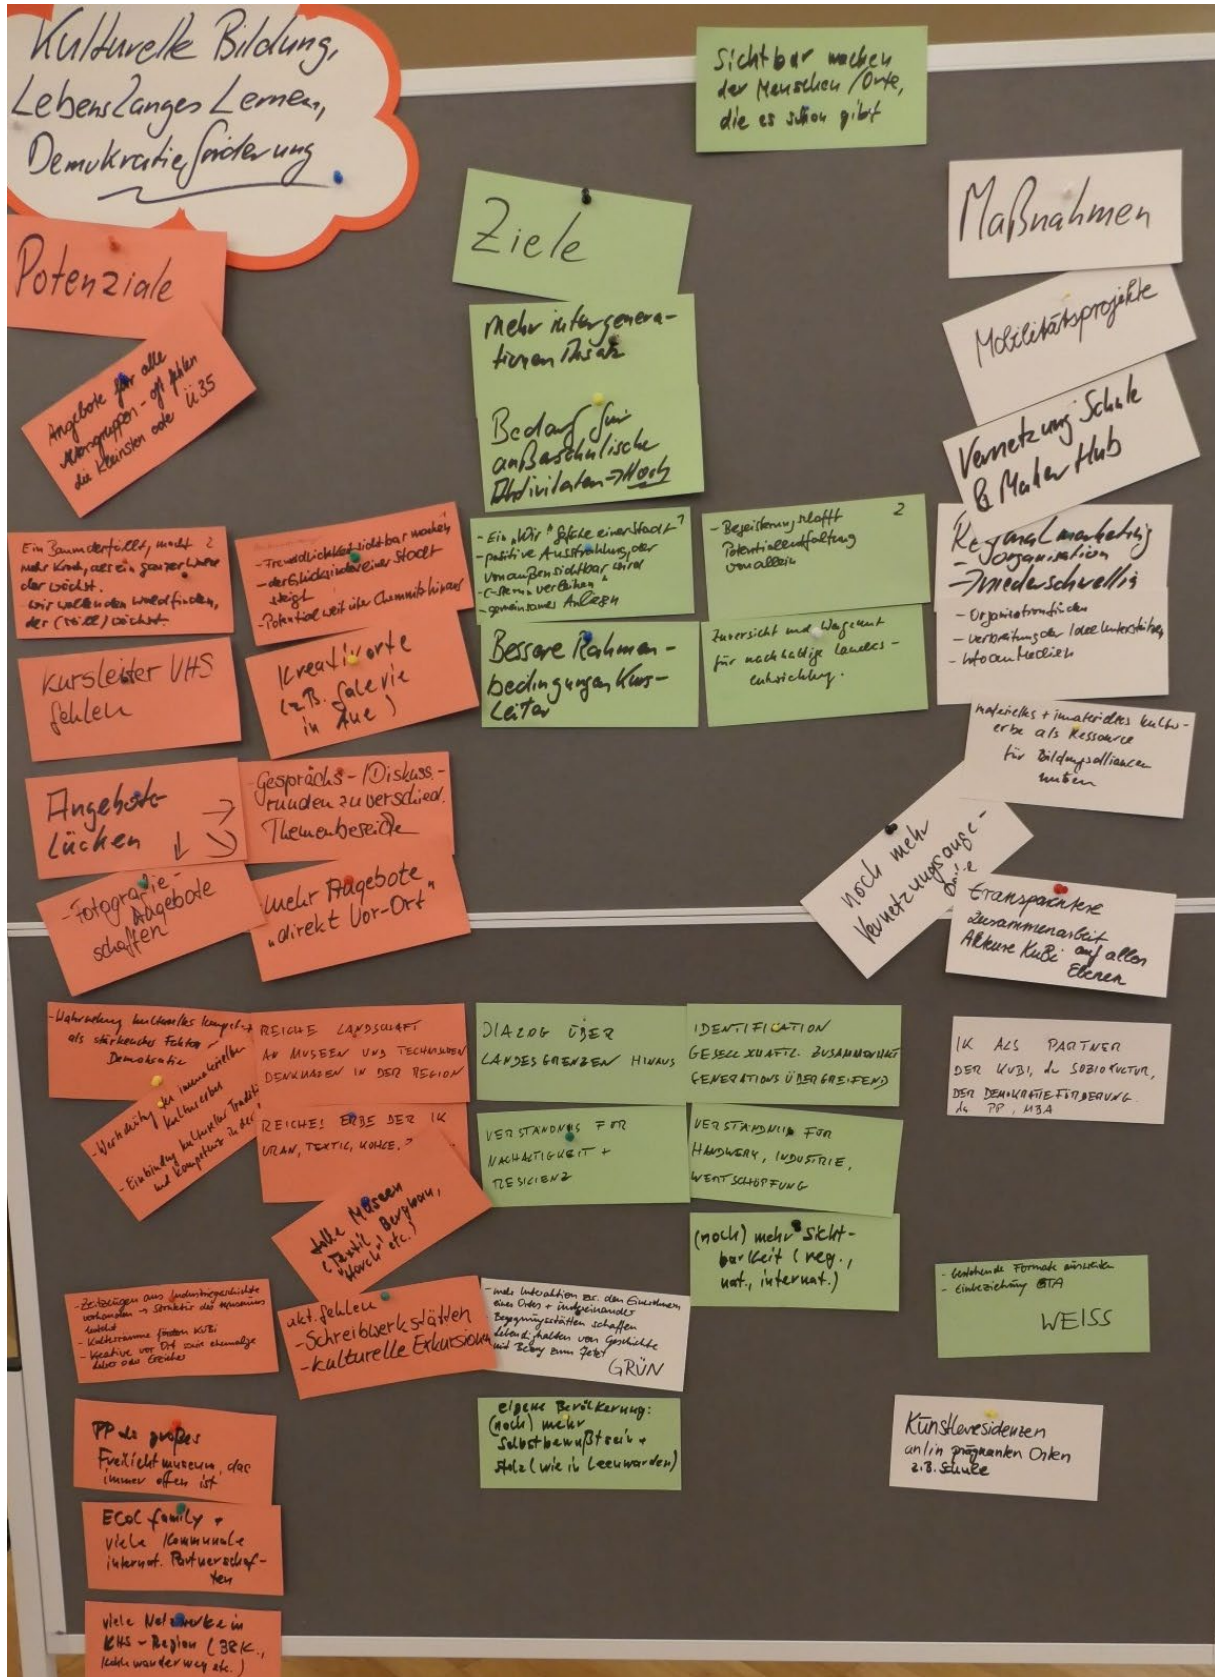 Kulturelle Bildung,
Lebenslanges Lernen,
Demokratieförderung
Sichtbar machen
der Menschen/Orte,
die es schon gibt
Potenziale
Angebote für alle
Altersgruppen - oft fehlen
die Kleinsten oder Ü35
Ein Baum der fällt, macht
mehr Krach, als ein ganzer Wald
der wächst.
- wir wollen den Wald finden,
der (still) wächst.
- Freundlichkeit sichtbar machen
- der Glücksindex einer Stadt
steigt
- Potential weit über Chemnitz hinaus
Kursleiter VHS
fehlen
Kreativorte
(z.B. Galerie
in Aue)
Angebots-
lücken
- Gesprächs-/Diskuss.-
runden zu verschied.
Themenbereiche
- Fotografie-
Angebote
schaffen
- mehr Angebote
"direkt Vor-Ort"
- Wahrnehmung kulturelles
als stärkender Faktor
Demokratie
- Wertschätzung des immateriellen
Kulturerbes
- Einbindung kultureller
und Kompetenz in der
REICHE LANDSCHAFT
AN MUSEEN UND TECHNISCHEN
DENKMALEN IN DER REGION
REICHES ERBE DER IK
URAN, TEXTIL, KOHLE..?
tolle Museen
(Textil, Bergbau,
"Horch" etc.)
- Zeitzeugen aus Industriegeschichte
vorhanden → Struktur des Museums
- Kulturräume fördern KuBi
- Kreative vor Ort sowie ehemalige
Lehrer oder Erzieher
akt. fehlen
- Schreibwerkstätten
- kulturelle Exkursionen
PP als großes
Freilichtmuseum, das
immer offen ist
ECoC family +
viele kommunale
internat. Partnerschaf-
ten
viele Netzwerke in
KHS-Region (38K.,
Kohlewanderweg etc.)
Ziele
mehr intergenera-
tionen Ansatz
Bedarf für
außerschulische
Aktivitäten → Hoch
- Ein "Wir" Gefühl einer Stadt
- positive Ausstrahlung, der
von außen sichtbar wird
- C-Stern verleihen
- gemeinsames Anlegen
- Begeisterung schafft
Potentialentfaltung
von allein
2
Bessere Rahmen-
bedingungen Kurs-
leiter
Zuversicht und Wagemut
für nachhaltige Landes-
entwicklung.
DIALOG ÜBER
LANDESGRENZEN HINAUS
IDENTIFICATION
GESELLSCHAFTL. ZUSAMMENHALT
GENERATIONSÜBERGREIFEND
VERSTÄNDNIS FÜR
NACHHALTIGKEIT +
RESILIENZ
VERSTÄNDNIS FÜR
HANDWERK, INDUSTRIE,
WERTSCHÖPFUNG
(noch) mehr Sicht-
barkeit (reg.,
nat., internat.)
- mehr Interaktion zw. den Einwohnern
eines Ortes + untereinander
- Begegnungsstätten schaffen
- lebendighalten von Geschichte
mit Bezug zum Jetzt
GRÜN
eigene Bevölkerung:
(noch) mehr
Selbstbewußtsein +
Stolz (wie in Leeuwarden)
Maßnahmen
Mobilitätsprojekte
Vernetzung Schule
& Maker Hub
Regionalmarketing
- organisation
→ niederschwellig
- Organisation finden
- Verbreitung der Idee unterstützen
- Info an Medien
materielles + imaterielles Kultur-
erbe als Ressource
für Bildungsallianzen
nutzen
noch mehr
Vernetzungsange-
transparentere
Zusammenarbeit
Akteure KuBi auf allen
Ebenen
IK ALS PARTNER
DER KUBI, der SOZIOKULTUR,
DER DEMOKRATIEFÖRDERUNG.
PP, M3A
- bestehende Formate ausweiten
- Einbeziehung GTA
WEISS
Künstleresidenzen
an/in prägnanten Orten
z.B. Schule